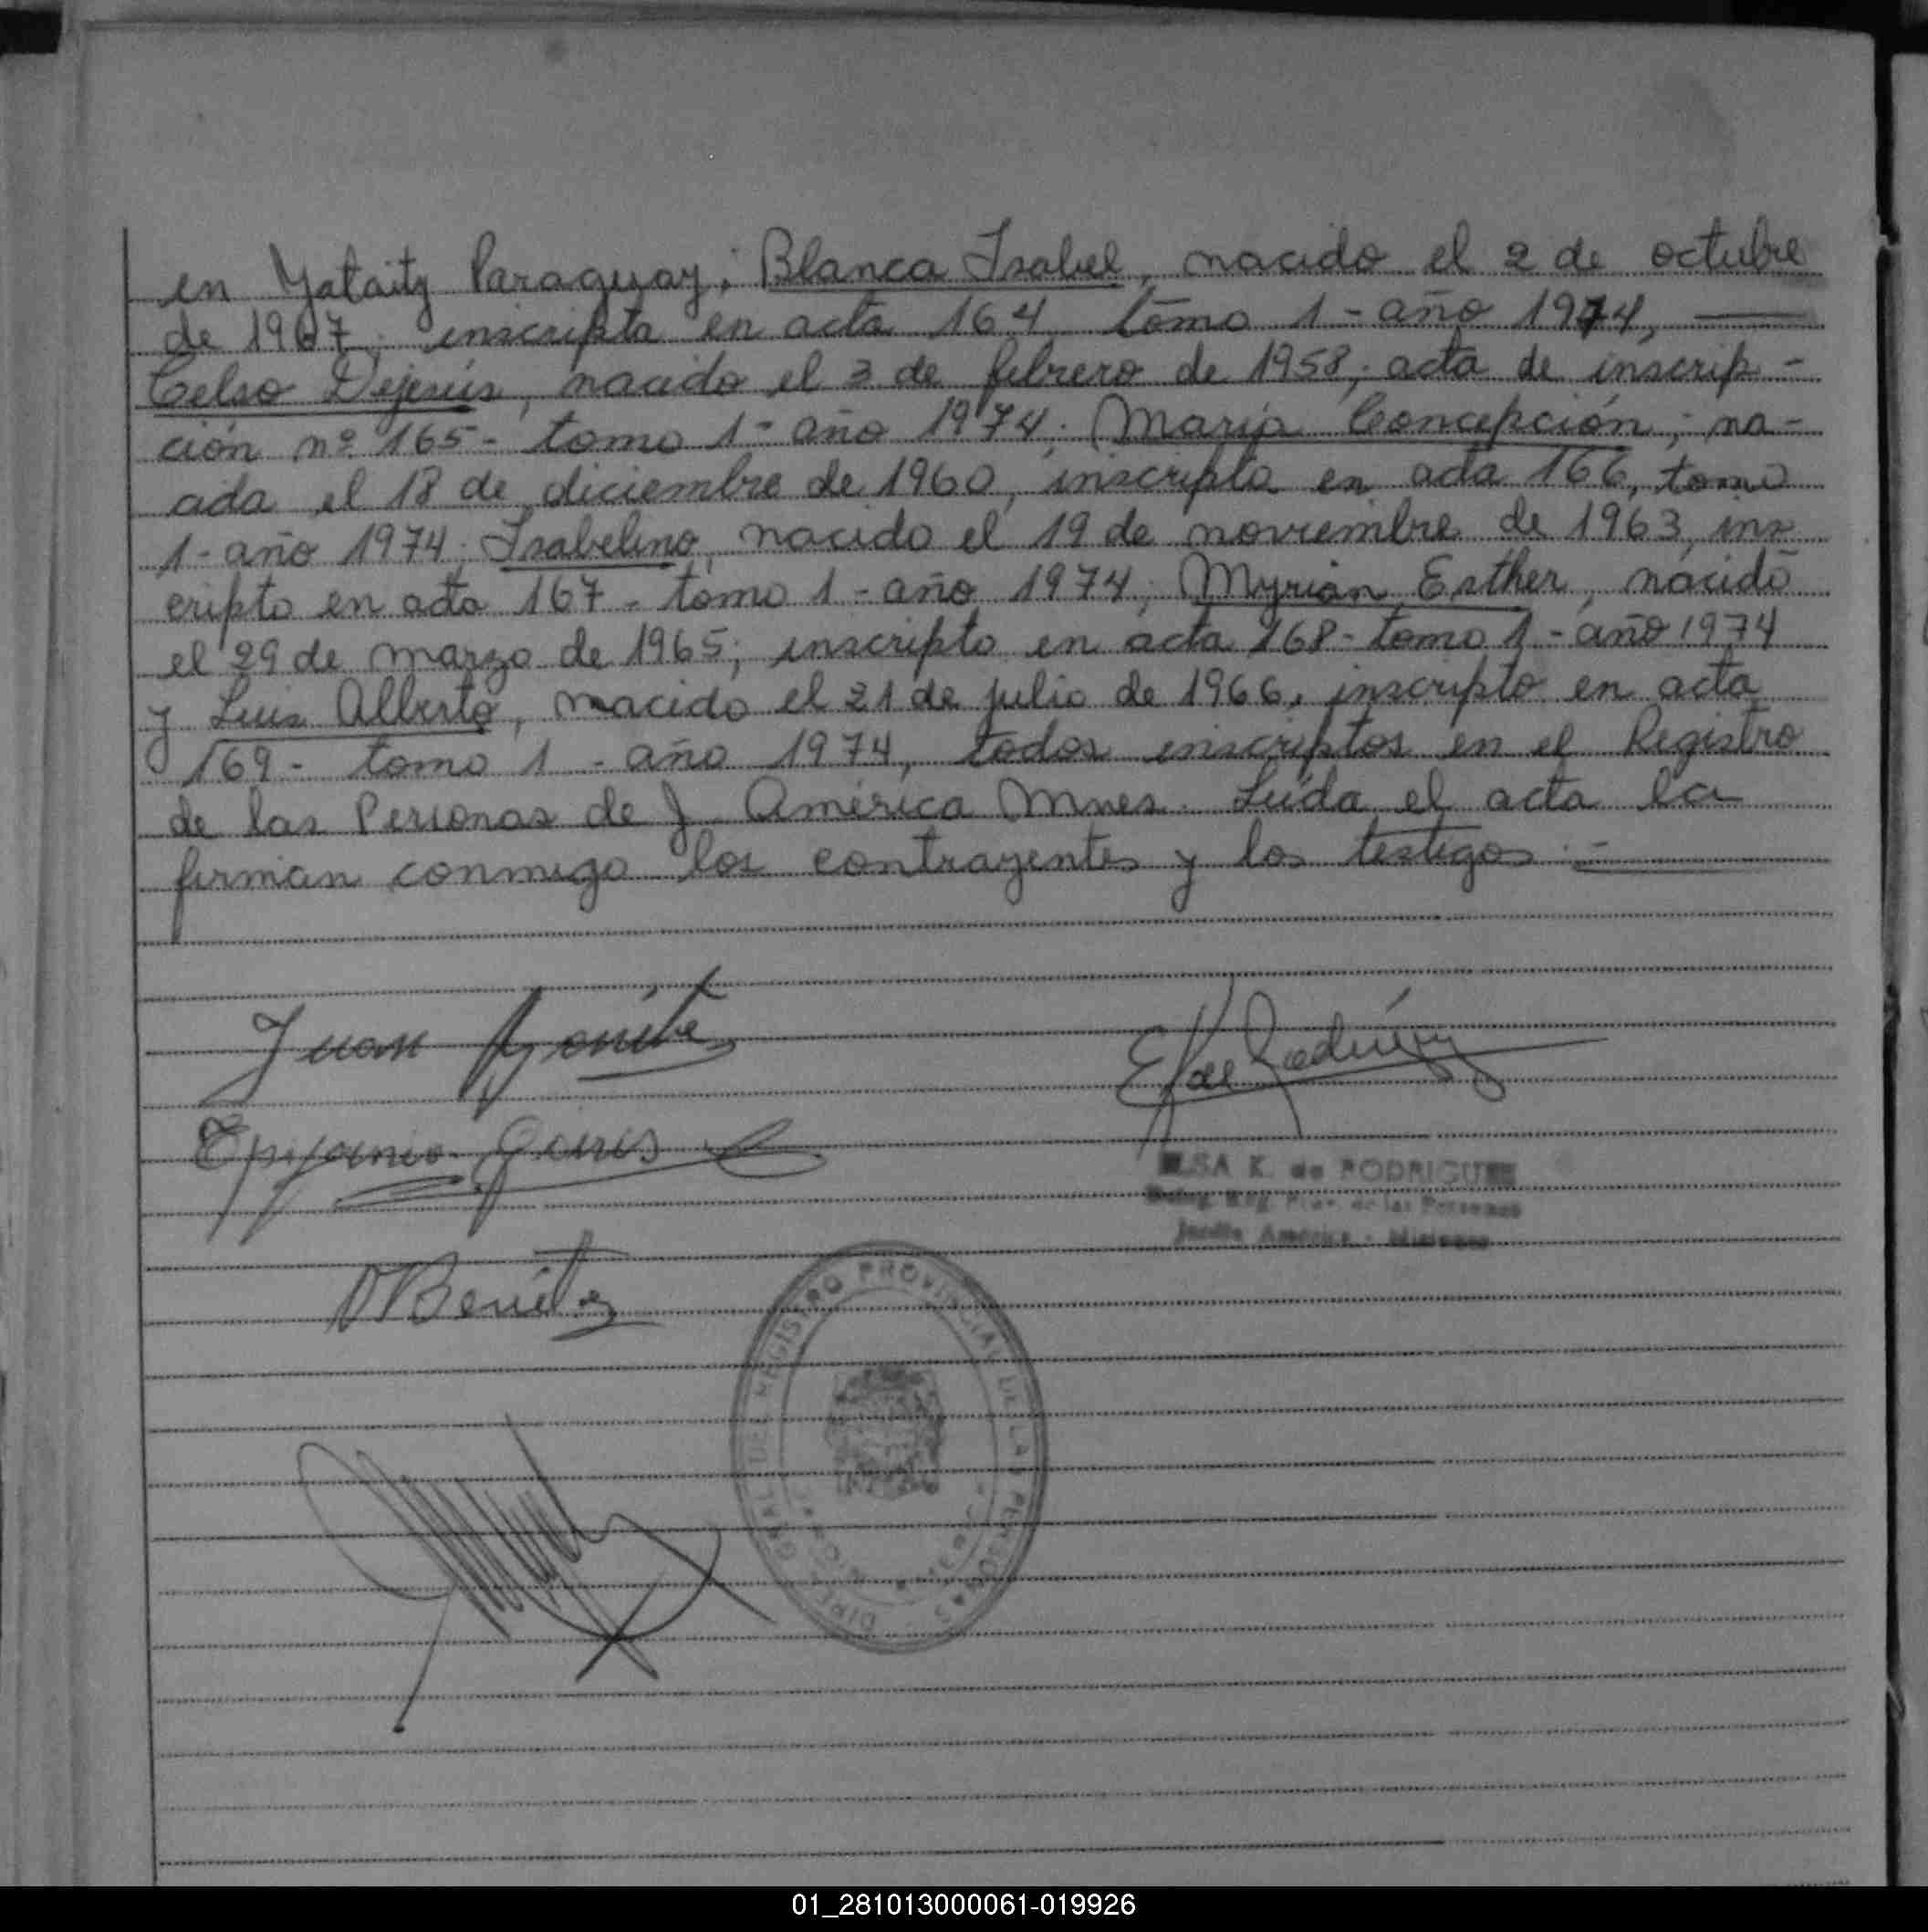 en Yataity Paraguay; Blanca Isabel, nacido el 2 de octubre
de 1967; inscripta en acta 164 tomo 1 - año 1974, —
Celso Dejesús, nacido el 3 de febrero de 1958; acta de inscrip-
ción nº 165 - tomo 1 - año 1974; María Concepción; na-
cida el 18 de diciembre de 1960, inscripta en acta 166, tomo
1 - año 1974. Isabelino, nacido el 19 de noviembre de 1963, ins
cripto en acta 167 - tomo 1 - año 1974; Myrian Esther, nacido
el 29 de marzo de 1965; inscripto en acta 168 - tomo 1 - año 1974
y Luis Alberto, nacido el 21 de julio de 1966, inscripto en acta
169 - tomo 1 - año 1974, todos inscriptos en el Registro
de las Personas de J. América Mnes. Leída el acta la
firman conmigo los contrayentes y los testigos. -
Juan Benítez
E K de Rodríguez
Epifania
ELSA K. de RODRIGUEZ
Deleg. Reg. Prov. de las Personas
Jardín América - Misiones
Benítez
REGISTRO PROVINCIAL DE LAS PERSONAS
01_281013000061-019926